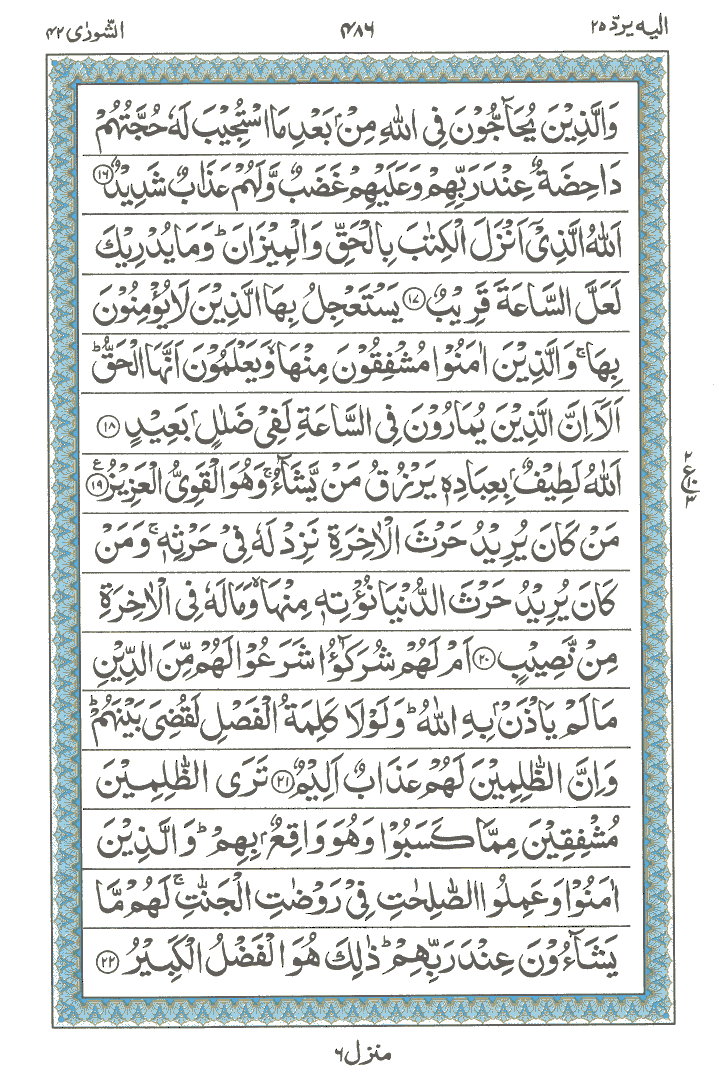 الیه یردّ ۲۵
۴۸۶
الشّورٰی ۴۲
وَالَّذِيْنَ يُحَآجُّوْنَ فِى اللّٰهِ مِنْۢ بَعْدِ مَا اسْتُجِيْبَ لَهٗ حُجَّتُهُمْ
دَاحِضَةٌ عِنْدَ رَبِّهِمْ وَعَلَيْهِمْ غَضَبٌ وَّلَهُمْ عَذَابٌ شَدِيْدٌ ۝۱۶
اَللّٰهُ الَّذِىْٓ اَنْزَلَ الْكِتٰبَ بِالْحَقِّ وَالْمِيْزَانَ ؕ وَمَا يُدْرِيْكَ
لَعَلَّ السَّاعَةَ قَرِيْبٌ ۝۱۷ يَسْتَعْجِلُ بِهَا الَّذِيْنَ لَا يُؤْمِنُوْنَ
بِهَا ۚ وَالَّذِيْنَ اٰمَنُوْا مُشْفِقُوْنَ مِنْهَا ۙ وَيَعْلَمُوْنَ اَنَّهَا الْحَقُّ ؕ
اَلَآ اِنَّ الَّذِيْنَ يُمَارُوْنَ فِى السَّاعَةِ لَفِىْ ضَلٰلٍۢ بَعِيْدٍ ۝۱۸
اَللّٰهُ لَطِيْفٌۢ بِعِبَادِهٖ يَرْزُقُ مَنْ يَّشَآءُ ۚ وَهُوَ الْقَوِىُّ الْعَزِيْزُ ۝۱۹ ع
۲
ع
۱۰
۳
مَنْ كَانَ يُرِيْدُ حَرْثَ الْاٰخِرَةِ نَزِدْ لَهٗ فِىْ حَرْثِهٖ ۚ وَمَنْ
كَانَ يُرِيْدُ حَرْثَ الدُّنْيَا نُؤْتِهٖ مِنْهَا ۙ وَمَا لَهٗ فِى الْاٰخِرَةِ
مِنْ نَّصِيْبٍ ۝۲۰ اَمْ لَهُمْ شُرَكٰٓؤُا شَرَعُوْا لَهُمْ مِّنَ الدِّيْنِ
مَا لَمْ يَاْذَنْۢ بِهِ اللّٰهُ ؕ وَلَوْلَا كَلِمَةُ الْفَصْلِ لَقُضِىَ بَيْنَهُمْ ؕ
وَاِنَّ الظّٰلِمِيْنَ لَهُمْ عَذَابٌ اَلِيْمٌ ۝۲۱ تَرَى الظّٰلِمِيْنَ
مُشْفِقِيْنَ مِمَّا كَسَبُوْا وَهُوَ وَاقِعٌۢ بِهِمْ ؕ وَالَّذِيْنَ
اٰمَنُوْا وَعَمِلُوا الصّٰلِحٰتِ فِىْ رَوْضٰتِ الْجَنّٰتِ ۚ لَهُمْ مَّا
يَشَآءُوْنَ عِنْدَ رَبِّهِمْ ؕ ذٰلِكَ هُوَ الْفَضْلُ الْكَبِيْرُ ۝۲۲
منزل ۶